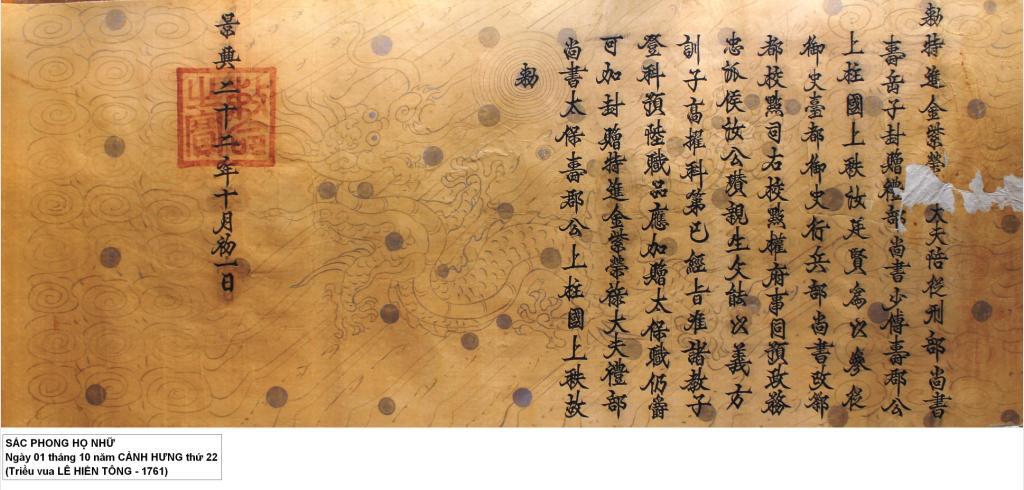 勅特進金紫榮 大夫陪從刑部尚書
壽岳子封贈禮部尚書少傅壽郡公
上柱國上秩汝廷賢爲以參從
御史臺都御史行兵部尚書
都校點司右校點權府事同預政務
忠派侯汝公瓚親生父能以義方
訓子高擢科第已經旨准諸教子
登科預陞職品應加贈太保職仍爵
可加封贈特進金紫榮祿大夫禮部
尚書太保壽郡公上柱國上秩故
勅
景興二十二年十月初一日
敕命之寶
SẮC PHONG HỌ NHỮ
Ngày 01 tháng 10 năm CẢNH HƯNG thứ 22
(Triều vua LÊ HIỂN TÔNG - 1761)